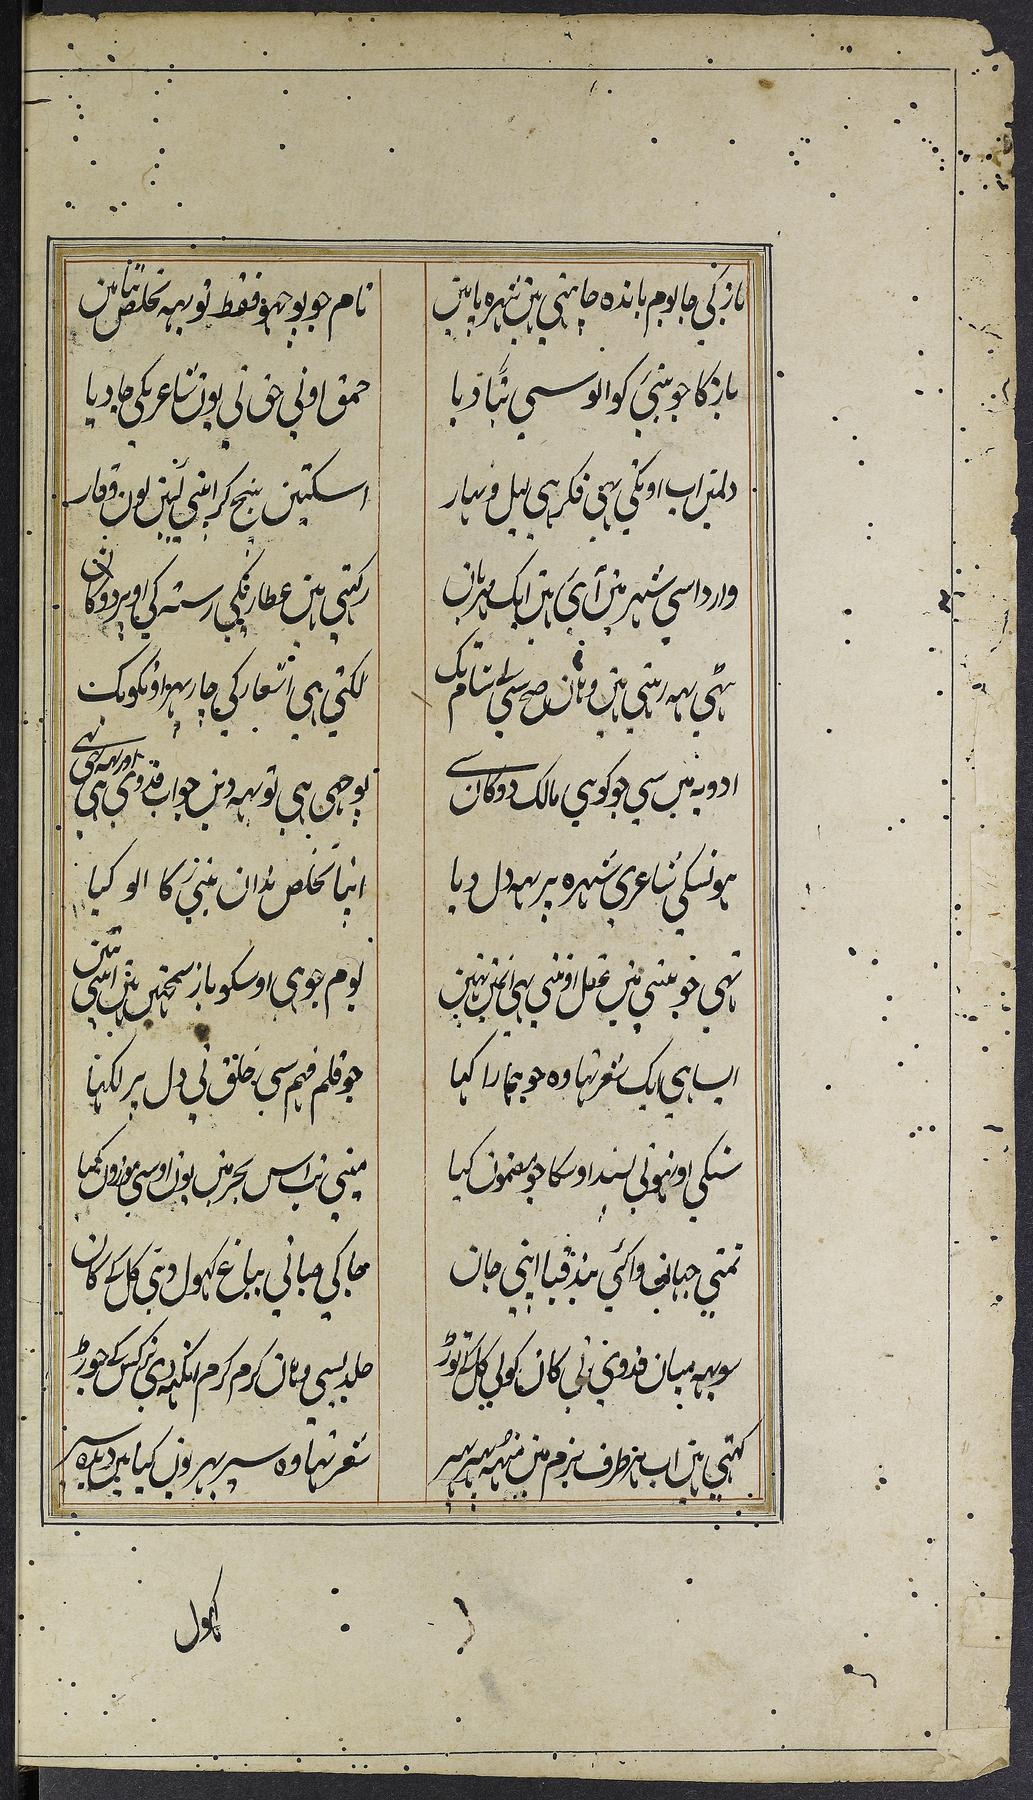 باز کی جا بوم باندہ چاہتی ہین شہرہ پاین
نام جو پوچھو فقط تو یہہ تخلص بتاین
باز کا جو بنئی کو الو سہی بتا دیا
حمق اونی حق نی یون شاعریکی جا دیا
دلمین اب اونکی یہی فکر ہی لیل و نہار
اسکتین بیچ کر اپنی تئین لون وقار
وارد اسی شہر مین آئی ہین ایک مہربان
رکتہی ہین عطار نکی رستہ کی اوپر دوکان
بہٹی یہہ رہتی ہین وہان صبح سی لی شام تک
لکتی ہی اشعار کی چار پہر اونکو بک
ادویہ مین سی جو کوہی مالک دوکان سے
پوچہی ہی تو یہہ دین جواب فدوی ہی اور یہہ نہی
ہونیکی شاعری شہرہ پر یہہ دل دیا
اپنا تخلص ندان بنئی کا الو کیا
تہی خو بنئی مین عقل اوتنی بہی انمین نہین
بوم جو ہی اوسکو باز سمجہین ہین اپنی تئین
ایسا ہی ایک شعر تہا وہ جو ہمارا کہا
جو قلم فہم سی خلق نی دل پر لکہا
سنکی اونہونی پسند اوسکا جو مضمون کیا
مینی تب اس بحر مین یون اوسی موزون کیا
تمتی جہانی وا کئی بند قبا اپنی جان
جا کی صبا نی بباغ کہول دئی گل کے کان
سو یہہ میان فدوی نی کان کو لی گل کے توڑ
جلدیسی وہان گرم گرم انکہہ دی نرگس کے جوڑ
کہتی ہین اب ہر طرف بزم مین منہہ پہیر پہیر
شعر تہا وہ سیر بہر یون کیا مین دیڑہ سیر
کہول